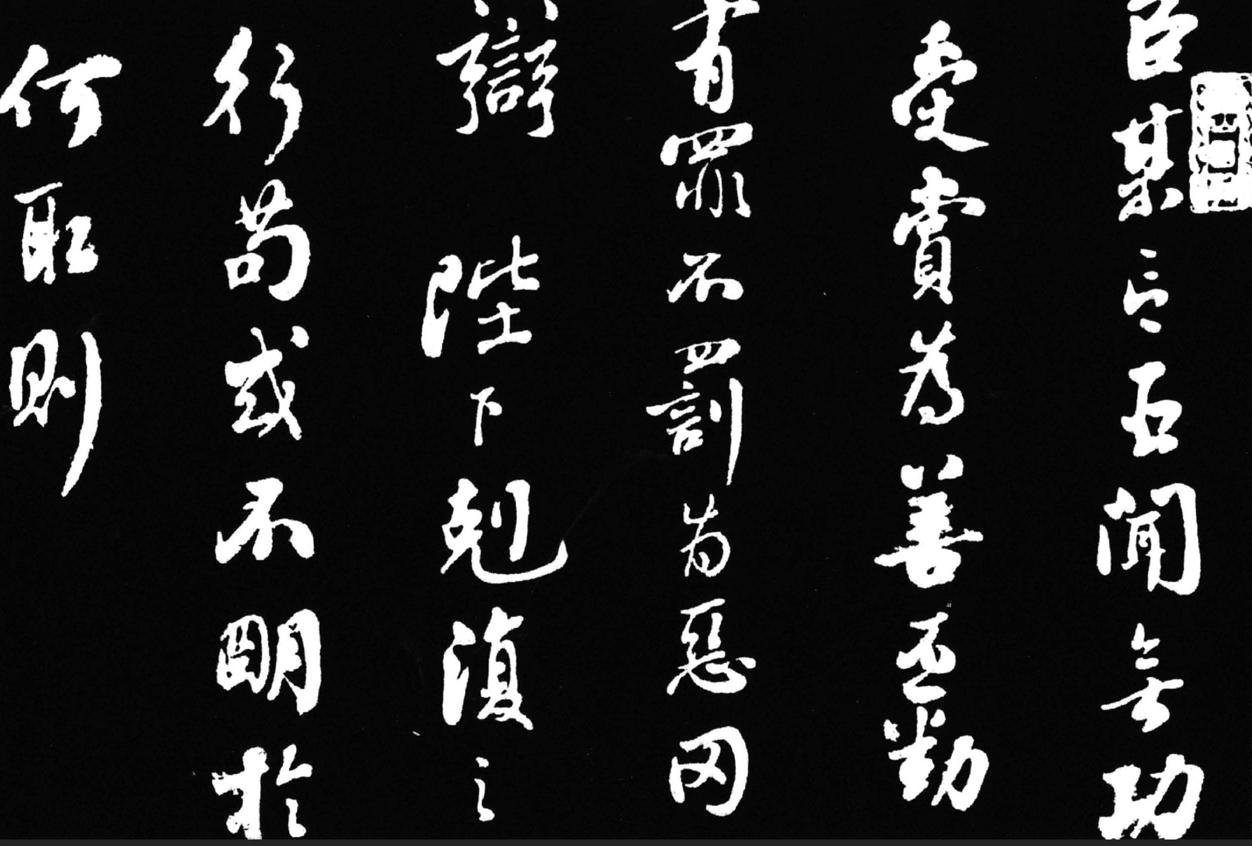 臣某言臣聞無功
受賞為善勸
有罪不罰為惡罔
辯 陛下剋復之
行苟或不明於
何取則